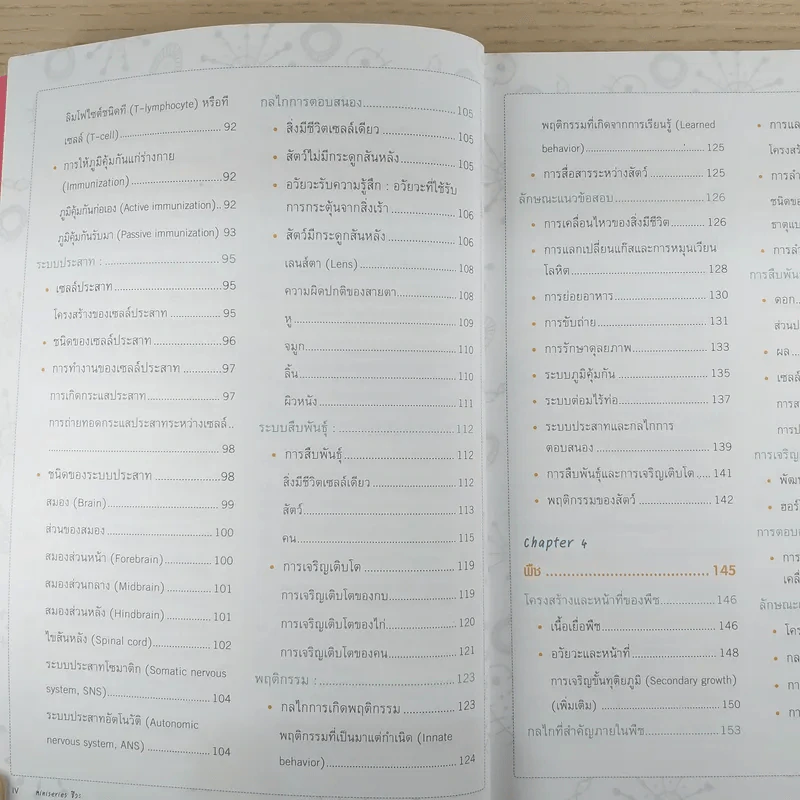 ลิมโฟไซต์ชนิดที (T-lymphocyte) หรือที
เซลล์ (T-cell)........................... 92
• การให้ภูมิคุ้มกันแก่ร่างกาย
(Immunization)........................... 92
ภูมิคุ้มกันก่อเอง (Active immunization).. 92
ภูมิคุ้มกันรับมา (Passive immunization) 93
ระบบประสาท : ........................... 95
• เซลล์ประสาท........................... 95
โครงสร้างของเซลล์ประสาท ............... 95
• ชนิดของเซลล์ประสาท.................... 96
• การทำงานของเซลล์ประสาท ............... 97
การเกิดกระแสประสาท...................... 97
การถ่ายทอดกระแสประสาทระหว่างเซลล์..
........................................ 98
• ชนิดของระบบประสาท .................... 98
สมอง (Brain)............................ 99
ส่วนของสมอง............................ 100
สมองส่วนหน้า (Forebrain)................ 100
สมองส่วนกลาง (Midbrain)................ 101
สมองส่วนหลัง (Hindbrain)................ 101
ไขสันหลัง (Spinal cord)................. 102
ระบบประสาทโซมาติก (Somatic nervous
system, SNS)............................ 104
ระบบประสาทอัตโนวัติ (Autonomic
nervous system, ANS) ................... 104
IV miniseries ชีวะ
กลไกการตอบสนอง......................... 105
• สิ่งมีชีวิตเซลล์เดียว ................ 105
• สัตว์ไม่มีกระดูกสันหลัง............... 105
• อวัยวะรับความรู้สึก : อวัยวะที่ใช้รับ
การกระตุ้นจากสิ่งเร้า .................. 106
• สัตว์มีกระดูกสันหลัง.................. 106
เลนส์ตา (Lens).......................... 108
ความผิดปกติของสายตา.................... 108
หู...................................... 109
จมูก.................................... 110
ลิ้น.................................... 110
ผิวหนัง................................. 111
ระบบสืบพันธุ์ : ........................ 112
• การสืบพันธุ์.......................... 112
สิ่งมีชีวิตเซลล์เดียว.................. 112
สัตว์................................... 113
คน...................................... 115
• การเจริญเติบโต ....................... 119
การเจริญเติบโตของกบ.................... 119
การเจริญเติบโตของไก่................... 120
การเจริญเติบโตของคน.................... 121
พฤติกรรม : ............................. 123
• กลไกการเกิดพฤติกรรม .................. 123
พฤติกรรมที่เป็นมาแต่กำเนิด (Innate
behavior)............................... 124
พฤติกรรมที่เกิดจากการเรียนรู้ (Learned
behavior)............................... 125
• การสื่อสารระหว่างสัตว์ ............... 125
ลักษณะแนวข้อสอบ ....................... 126
• การเคลื่อนไหวของสิ่งมีชีวิต.......... 126
• การแลกเปลี่ยนแก๊สและการหมุนเวียน
โลหิต................................... 128
• การย่อยอาหาร.......................... 130
• การขับถ่าย............................ 131
• การรักษาดุลยภาพ....................... 133
• ระบบภูมิคุ้มกัน ...................... 135
• ระบบต่อมไร้ท่อ........................ 137
• ระบบประสาทและกลไกการ
ตอบสนอง ................................ 139
• การสืบพันธุ์และการเจริญเติบโต .... 141
• พฤติกรรมของสัตว์ ..................... 142
Chapter 4
พืช .................................... 145
โครงสร้างและหน้าที่ของพืช.............. 146
• เนื้อเยื่อพืช......................... 146
• อวัยวะและหน้าที่ ..................... 148
การเจริญขั้นทุติยภูมิ (Secondary growth)
(เพิ่มเติม) ............................ 150
กลไกที่สำคัญภายในพืช................... 153